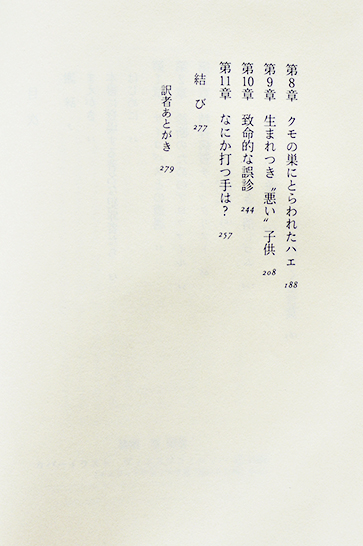 第8章 クモの巣にとらわれたハエ 188
第9章 生まれつき〝悪い〟子供 208
第10章 致命的な誤診 244
第11章 なにか打つ手は？ 257
結び 277
訳者あとがき 279